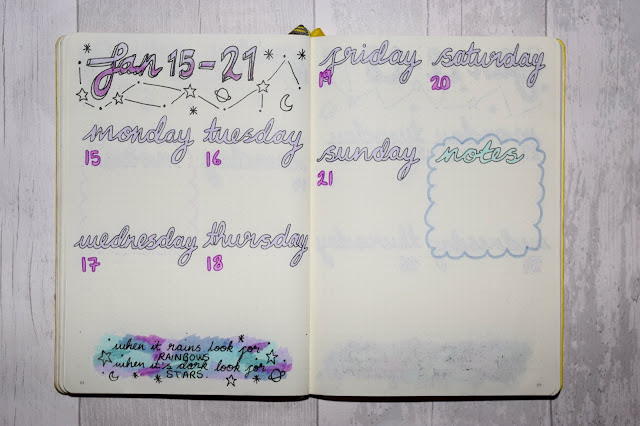 Jan 15-21
monday tuesday
15 16
wednesday thursday
17 18
when it rains look for
RAINBOWS
when it's dark look for
STARS.
friday saturday
19 20
sunday notes
21